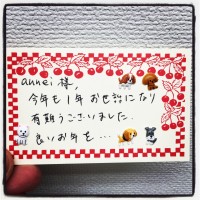 annei 様,
今年も1年 お世話になり
有難うございました.
良いお年を…